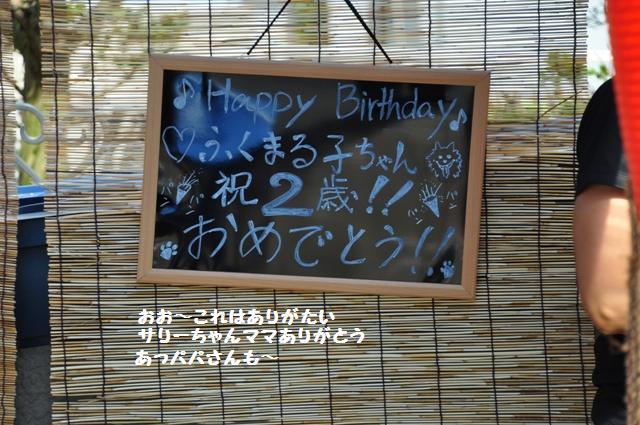 ♪Happy Birthday♪
♡ふくまる子ちゃん
祝2歳!!
おめでとう!!
おお～これはありがたい
サリーちゃんママありがとう
あっパパさんも～